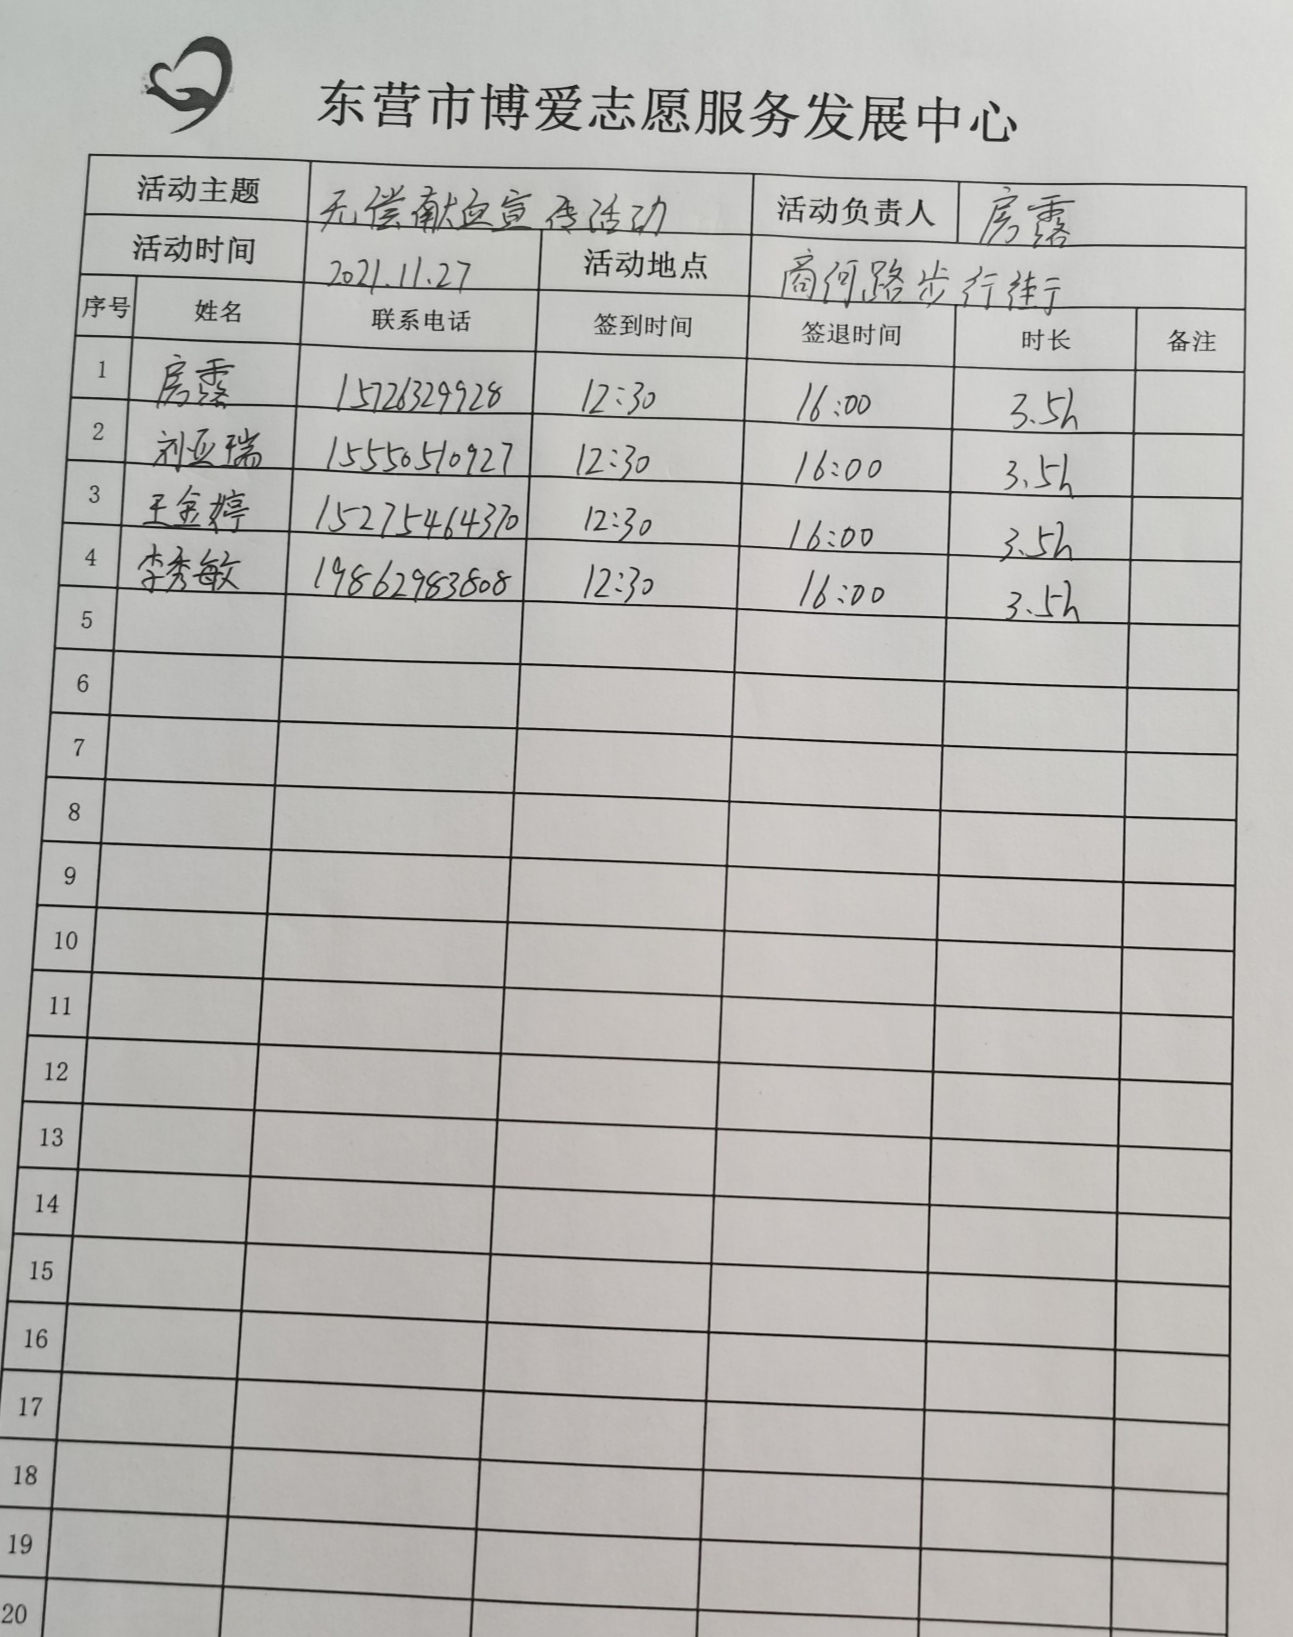 东营市博爱志愿服务发展中心
活动主题 无偿献血宣传活动 活动负责人 房露
活动时间 2021.11.27 活动地点 商河路步行街
序号 姓名 联系电话 签到时间 签退时间 时长 备注
1 房露 15726329928 12:30 16:00 3.5h
2 刘亚瑞 15550510927 12:30 16:00 3.5h
3 王金婷 15275464370 12:30 16:00 3.5h
4 李秀敏 19862983808 12:30 16:00 3.5h
5
6
7
8
9
10
11
12
13
14
15
16
17
18
19
20